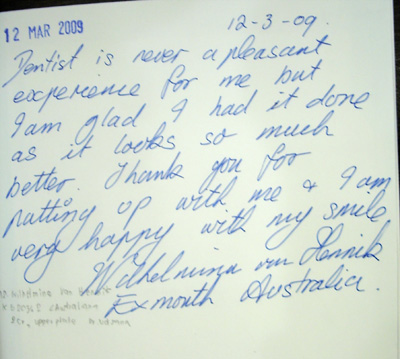 12 MAR 2009
12-3-09.
Dentist is never a pleasant
experience for me but
I am glad I had it done
as it looks so much
better. Thank you for
putting up with me & I am
very happy with my smile
Wilhelmina van Hennik
Exmouth Australia.